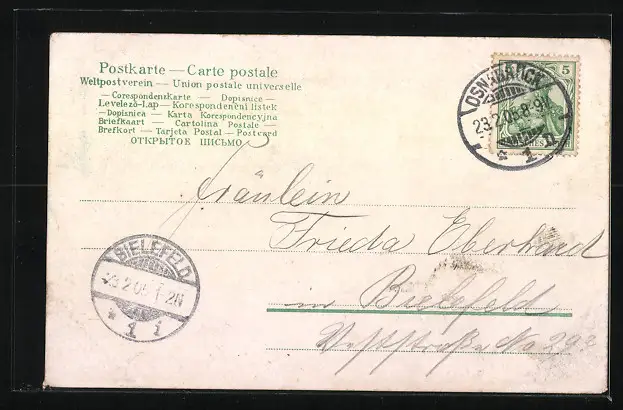 Postkarte — Carte postale
Weltpostverein — Union postale universelle
— Corespondenskarte — Dopisnice —
Levelező-Lap — Korespondenění listek
— Dopisnica — Karta Korespondencyjna
Briefkaart — Cartolina Postale —
Brefkort — Tarjeta Postal — Postcard
ОТКРЫТОЕ ПИСЬМО
5
OSNABRÜCK
23.2.05.8-9
* 1 n
Fräulein
Frieda Eberhardt
BIELEFELD
23.2.05
* 1 i
in Bielefeld
Weststraße No